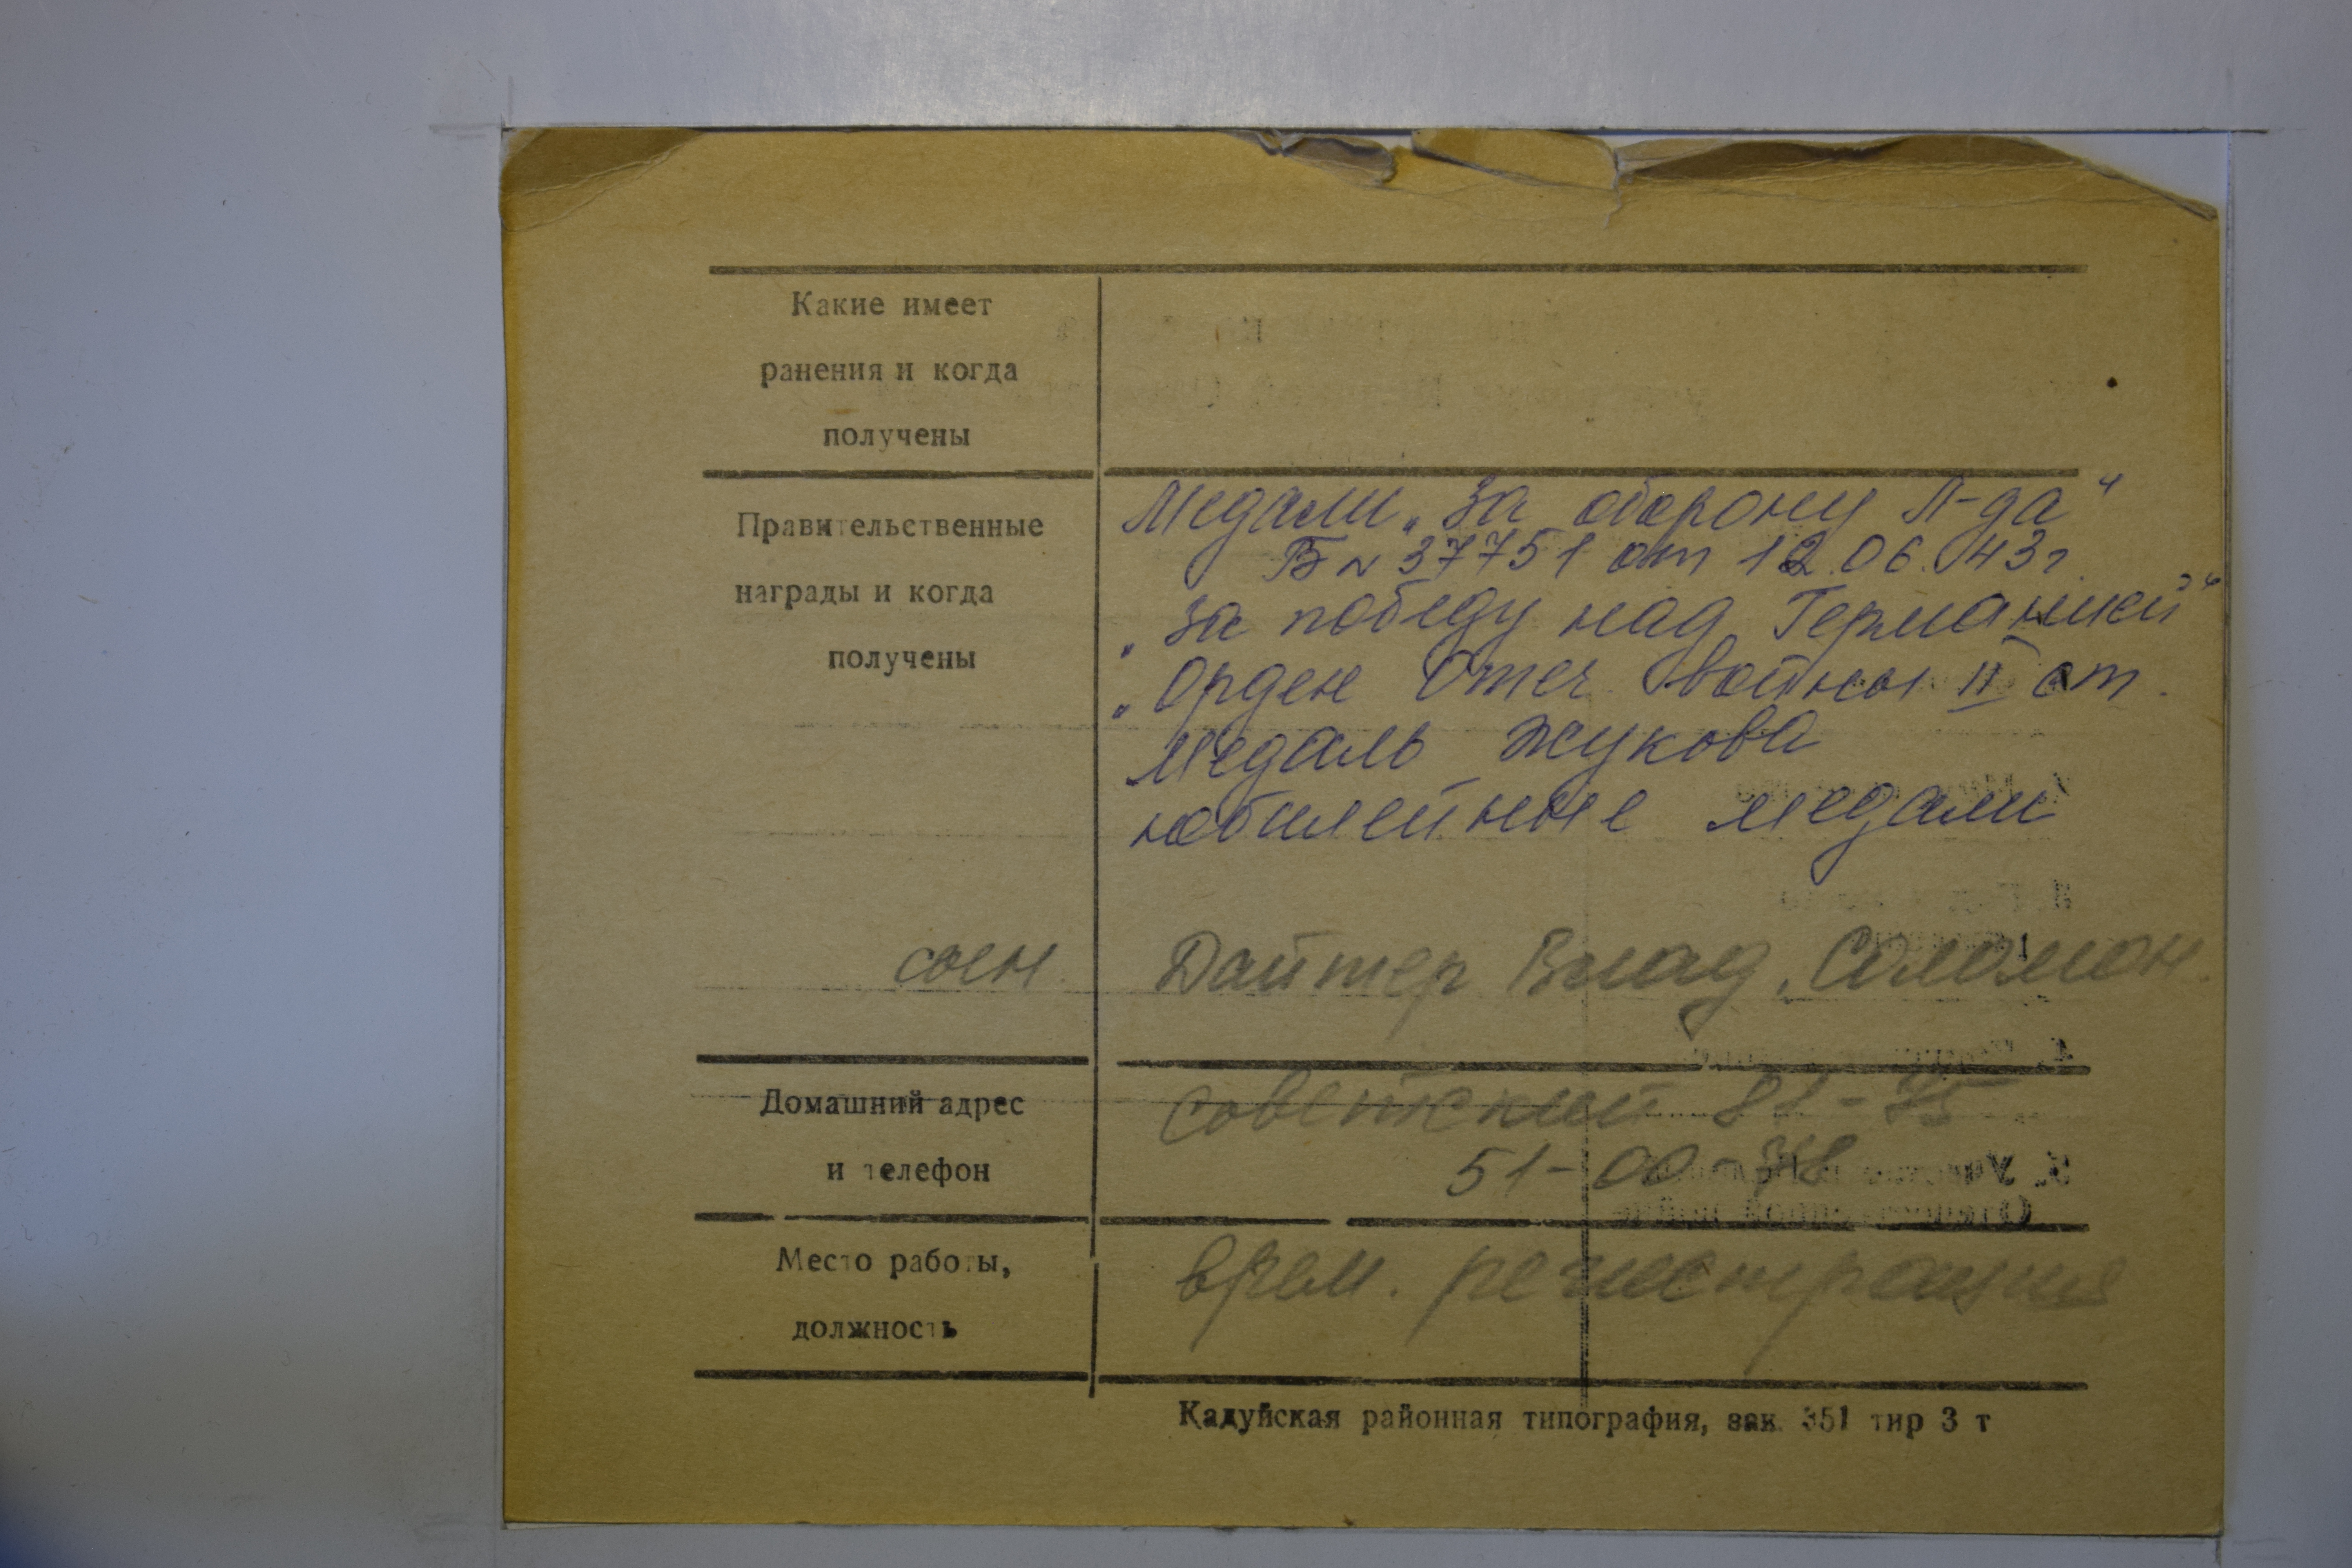 Какие имеет
ранения и когда
получены
Правительственные
награды и когда
получены
Медали „За оборону Л-да"
Б N 37751 от 12.06.43г.
„За победу над Германией"
„Орден Отеч войны II ст.
Медаль Жукова
юбилейные медали
Дайтер Влад. Соломон.
Домашний адрес
и телефон
Советский 81-75
51-00-
Место работы,
должность
врем. регистрация
Кадуйская районная типография, зак. 351 тир 3 т